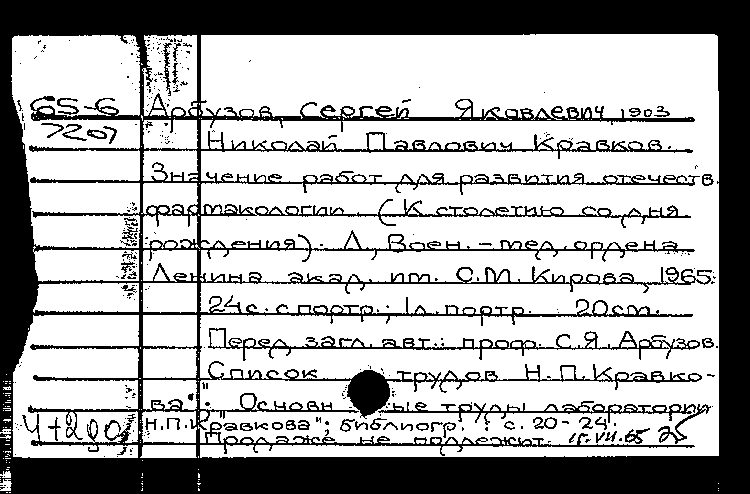 65-6 Арбузов, Сергей Яковлевич, 1903
7207 Николай Павлович Кравков.
Значение работ для развития отечеств.
фармакологии. (К столетию со дня
рождения). Л., Воен.-мед. ордена
Ленина акад. им. С.М. Кирова, 1965.
24 с. с портр.; 1 л. портр. 20 см.
Перед загл. авт.: проф. С.Я. Арбузов.
Список трудов Н.П. Кравко-
ва": "Основн ые труды лаборатории
Н.П. Кравкова"; библиогр.: с. 20-24.
Продаже не подлежит.